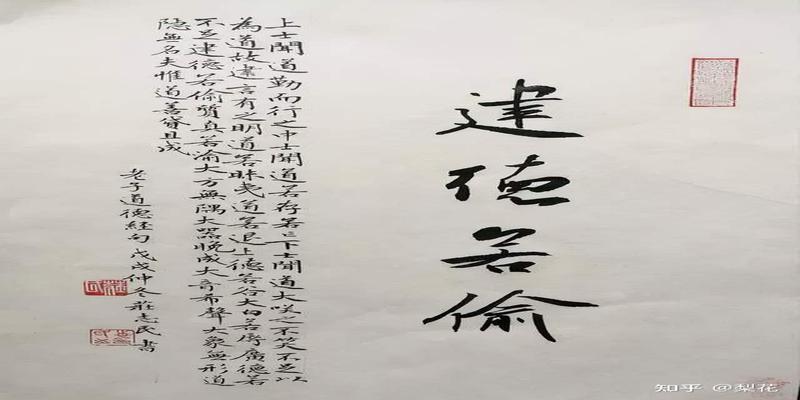 建德若偷
上士聞道勤而行之中士聞道若存若亡下士聞道大咲之不笑不足以
為道故建言有之明道若昧夷道若退上德若谷大白若辱廣德若
不足建德若偷質真若渝大方無隅大器晚成大音希聲大象無形道
隱無名夫惟道善貸且成
老子道德經句 戊戌仲冬莊志民書
知乎 @梨花